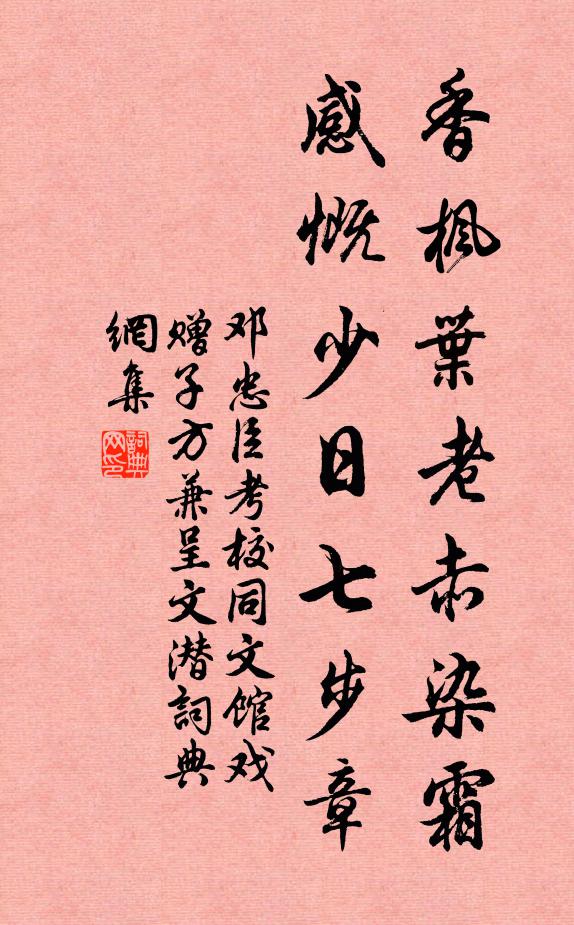 香楓葉老赤染霜
感慨少日七步章
邓忠臣考校同文馆戏
赠子方兼呈文潜詞典
網集
詞典網印